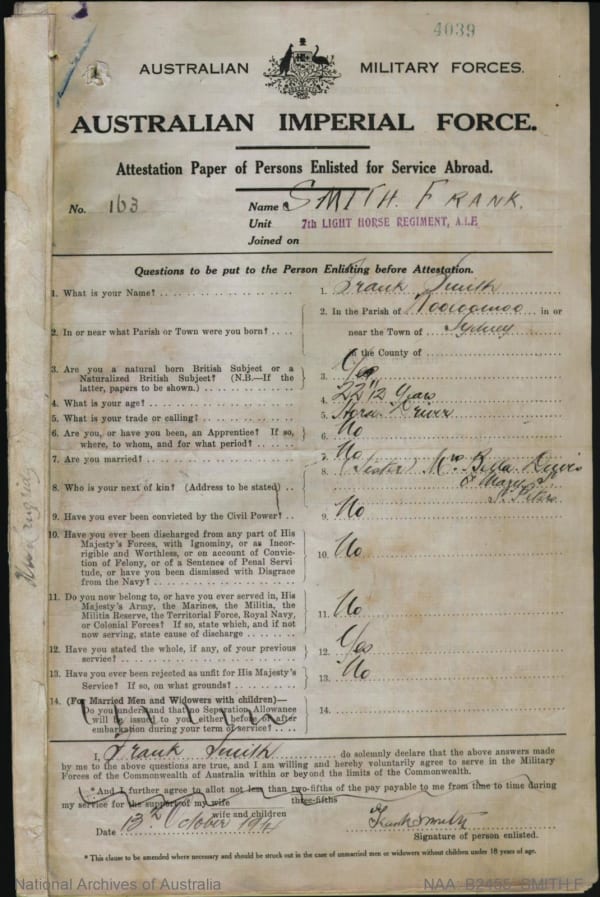 4039
AUSTRALIAN MILITARY FORCES.
AUSTRALIAN IMPERIAL FORCE.
Attestation Paper of Persons Enlisted for Service Abroad.
No. 163 Name SMITH. FRANK.
Unit 7th LIGHT HORSE REGIMENT, A.I.F.
Joined on
Questions to be put to the Person Enlisting before Attestation.
1. What is your Name? 1. Frank Smith
2. In or near what Parish or Town were you born? 2. In the Parish of in or
near the Town of Sydney
in the County of
3. Are you a natural born British Subject or a
Naturalized British Subject? (N.B.—If the
latter, papers to be shown.) 3. Yes
4. What is your age? 4. 22 1/2 Years
5. What is your trade or calling? 5. Horse Driver
6. Are you, or have you been, an Apprentice? If so,
where, to whom, and for what period? 6. No
7. Are you married? 7. No
8. Who is your next of kin? (Address to be stated) 8. (Sister) Mrs Bella
Mary St
St Peters
9. Have you ever been convicted by the Civil Power? 9. No
10. Have you ever been discharged from any part of His
Majesty's Forces, with Ignominy, or as Incor-
rigible and Worthless, or on account of Convic-
tion of Felony, or of a Sentence of Penal Servi-
tude, or have you been dismissed with Disgrace
from the Navy? 10. No
11. Do you now belong to, or have you ever served in, His
Majesty's Army, the Marines, the Militia, the
Militia Reserve, the Territorial Force, Royal Navy,
or Colonial Forces? If so, state which, and if not
now serving, state cause of discharge 11. No
12. Have you stated the whole, if any, of your previous
service? 12. Yes
13. Have you ever been rejected as unfit for His Majesty's
Service? If so, on what grounds? 13. No
14. (For Married Men and Widowers with children)—
Do you understand that no Separation Allowance
will be issued to you either before or after
embarkation during your term of service? 14.
I, Frank Smith do solemnly declare that the above answers made
by me to the above questions are true, and I am willing and hereby voluntarily agree to serve in the Military
Forces of the Commonwealth of Australia within or beyond the limits of the Commonwealth.
*And I further agree to allot not less than two-fifths of the pay payable to me from time to time during
three-fifths
my service for the support of my wife
wife and children
Date 13 October 1914 Frank Smith
Signature of person enlisted.
* This clause to be amended where necessary and should be struck out in the case of unmarried men or widowers without children under 18 years of age.
National Archives of Australia NAA: B2455, SMITH F